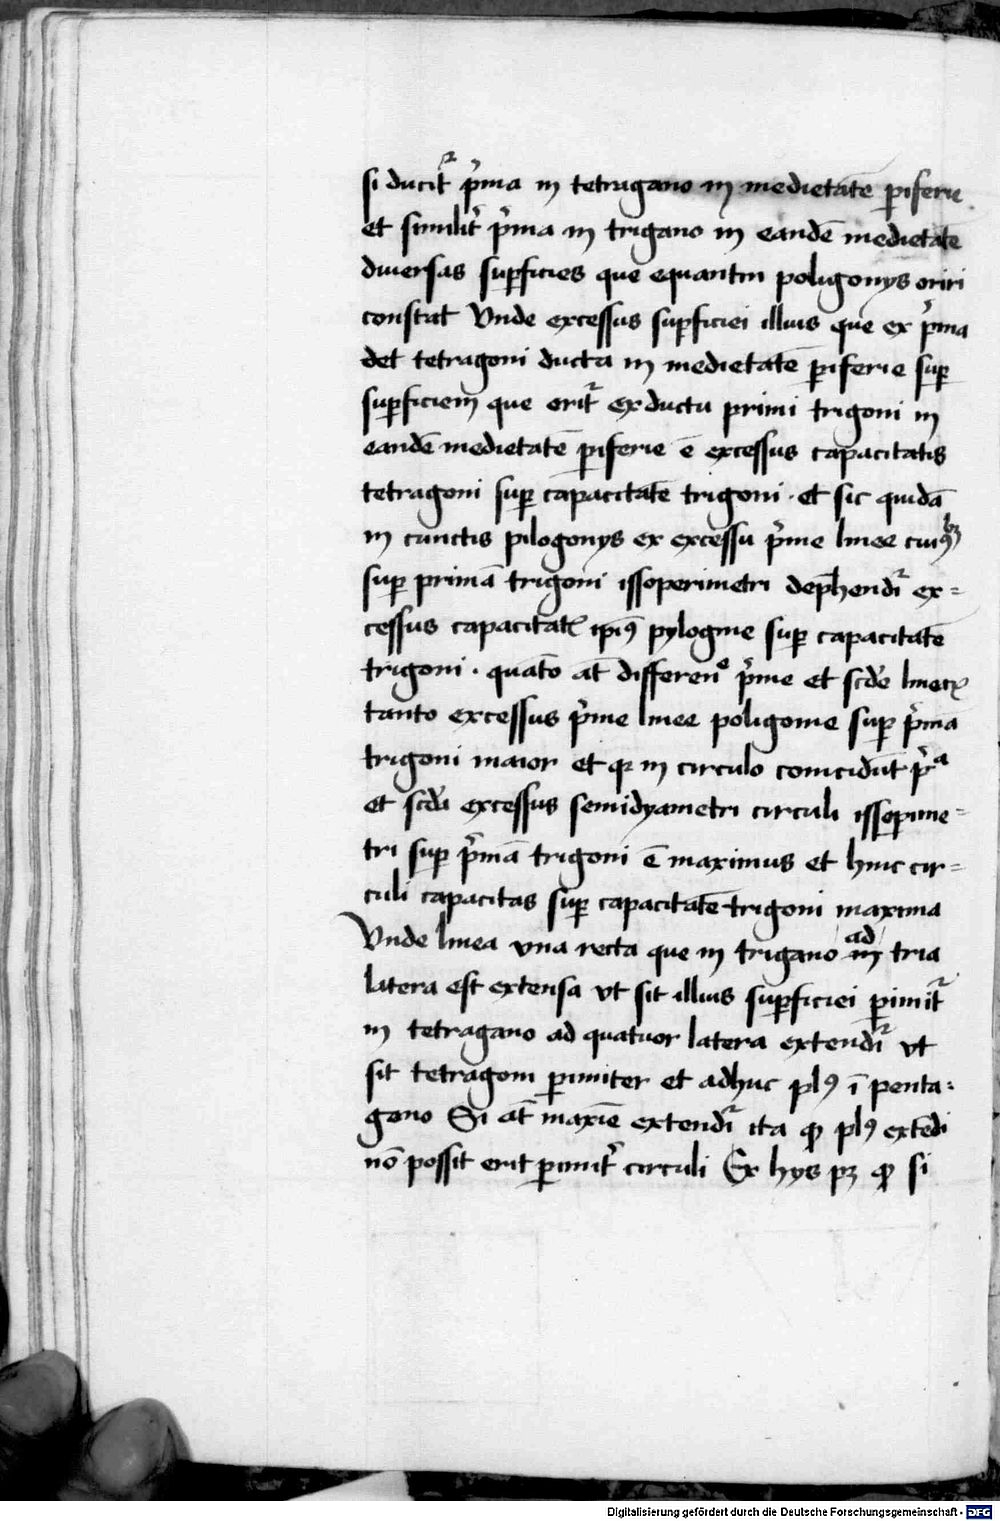 si ducit᷑ p̓ma in tetrigano in medietatē ꝑiferie
et similit̓ p̓ma in trigano in eandē medietatē
diuersas suꝑficies que equantur poligonys oriri
constat Vnde excessus suꝑficiei illius que ex p̓ma
det tetragoni ducta in medietatē ꝑiferie suꝑ
suꝑficiem que orit᷑ ex ductu primi trigoni in
eandē medietatē ꝑiferie ē excessus capacitatis
tetragoni suꝑ capacitatē trigoni · et sic quidā
in cunctis pilogonys ex excessu p̓me linee
suꝑ primā trigoni issoperimetri dep̄hendi᷑ ex=
cessus capacitatꝭ ipiꝰ pylogine suꝑ capacitatē
trigoni · quāto āt differenͦ p̓me et scd̓e
tanto excessus p̓me linee poligonie suꝑ p̓ma
trigoni maior et qꝛ in circulo coincidūt p̓ᵃ
et scd̓a excessus semidyametri circuli issoꝑime=
tri suꝑ p̓mā trigoni ē maximus et hinc cir=
culi capacitas suꝑ capacitatē trigoni maxima
Vnde linea vna recta que in trigano in ad tria
latera est extensa vt sit illius suꝑficiei ꝑimit᷑
in tetragano ad quatuor latera extendi᷑ vt
sit tetragoni ꝑimiter et adhuc plꝰ ī penta=
gono Si āt maxīe extendi᷑ ita ꝙ plꝰ extēdi
nō possit erit ꝑimit᷑ circuli Ex hys pꝫ ꝙ si
Digitalisierung gefördert durch die Deutsche Forschungsgemeinschaft - DFG